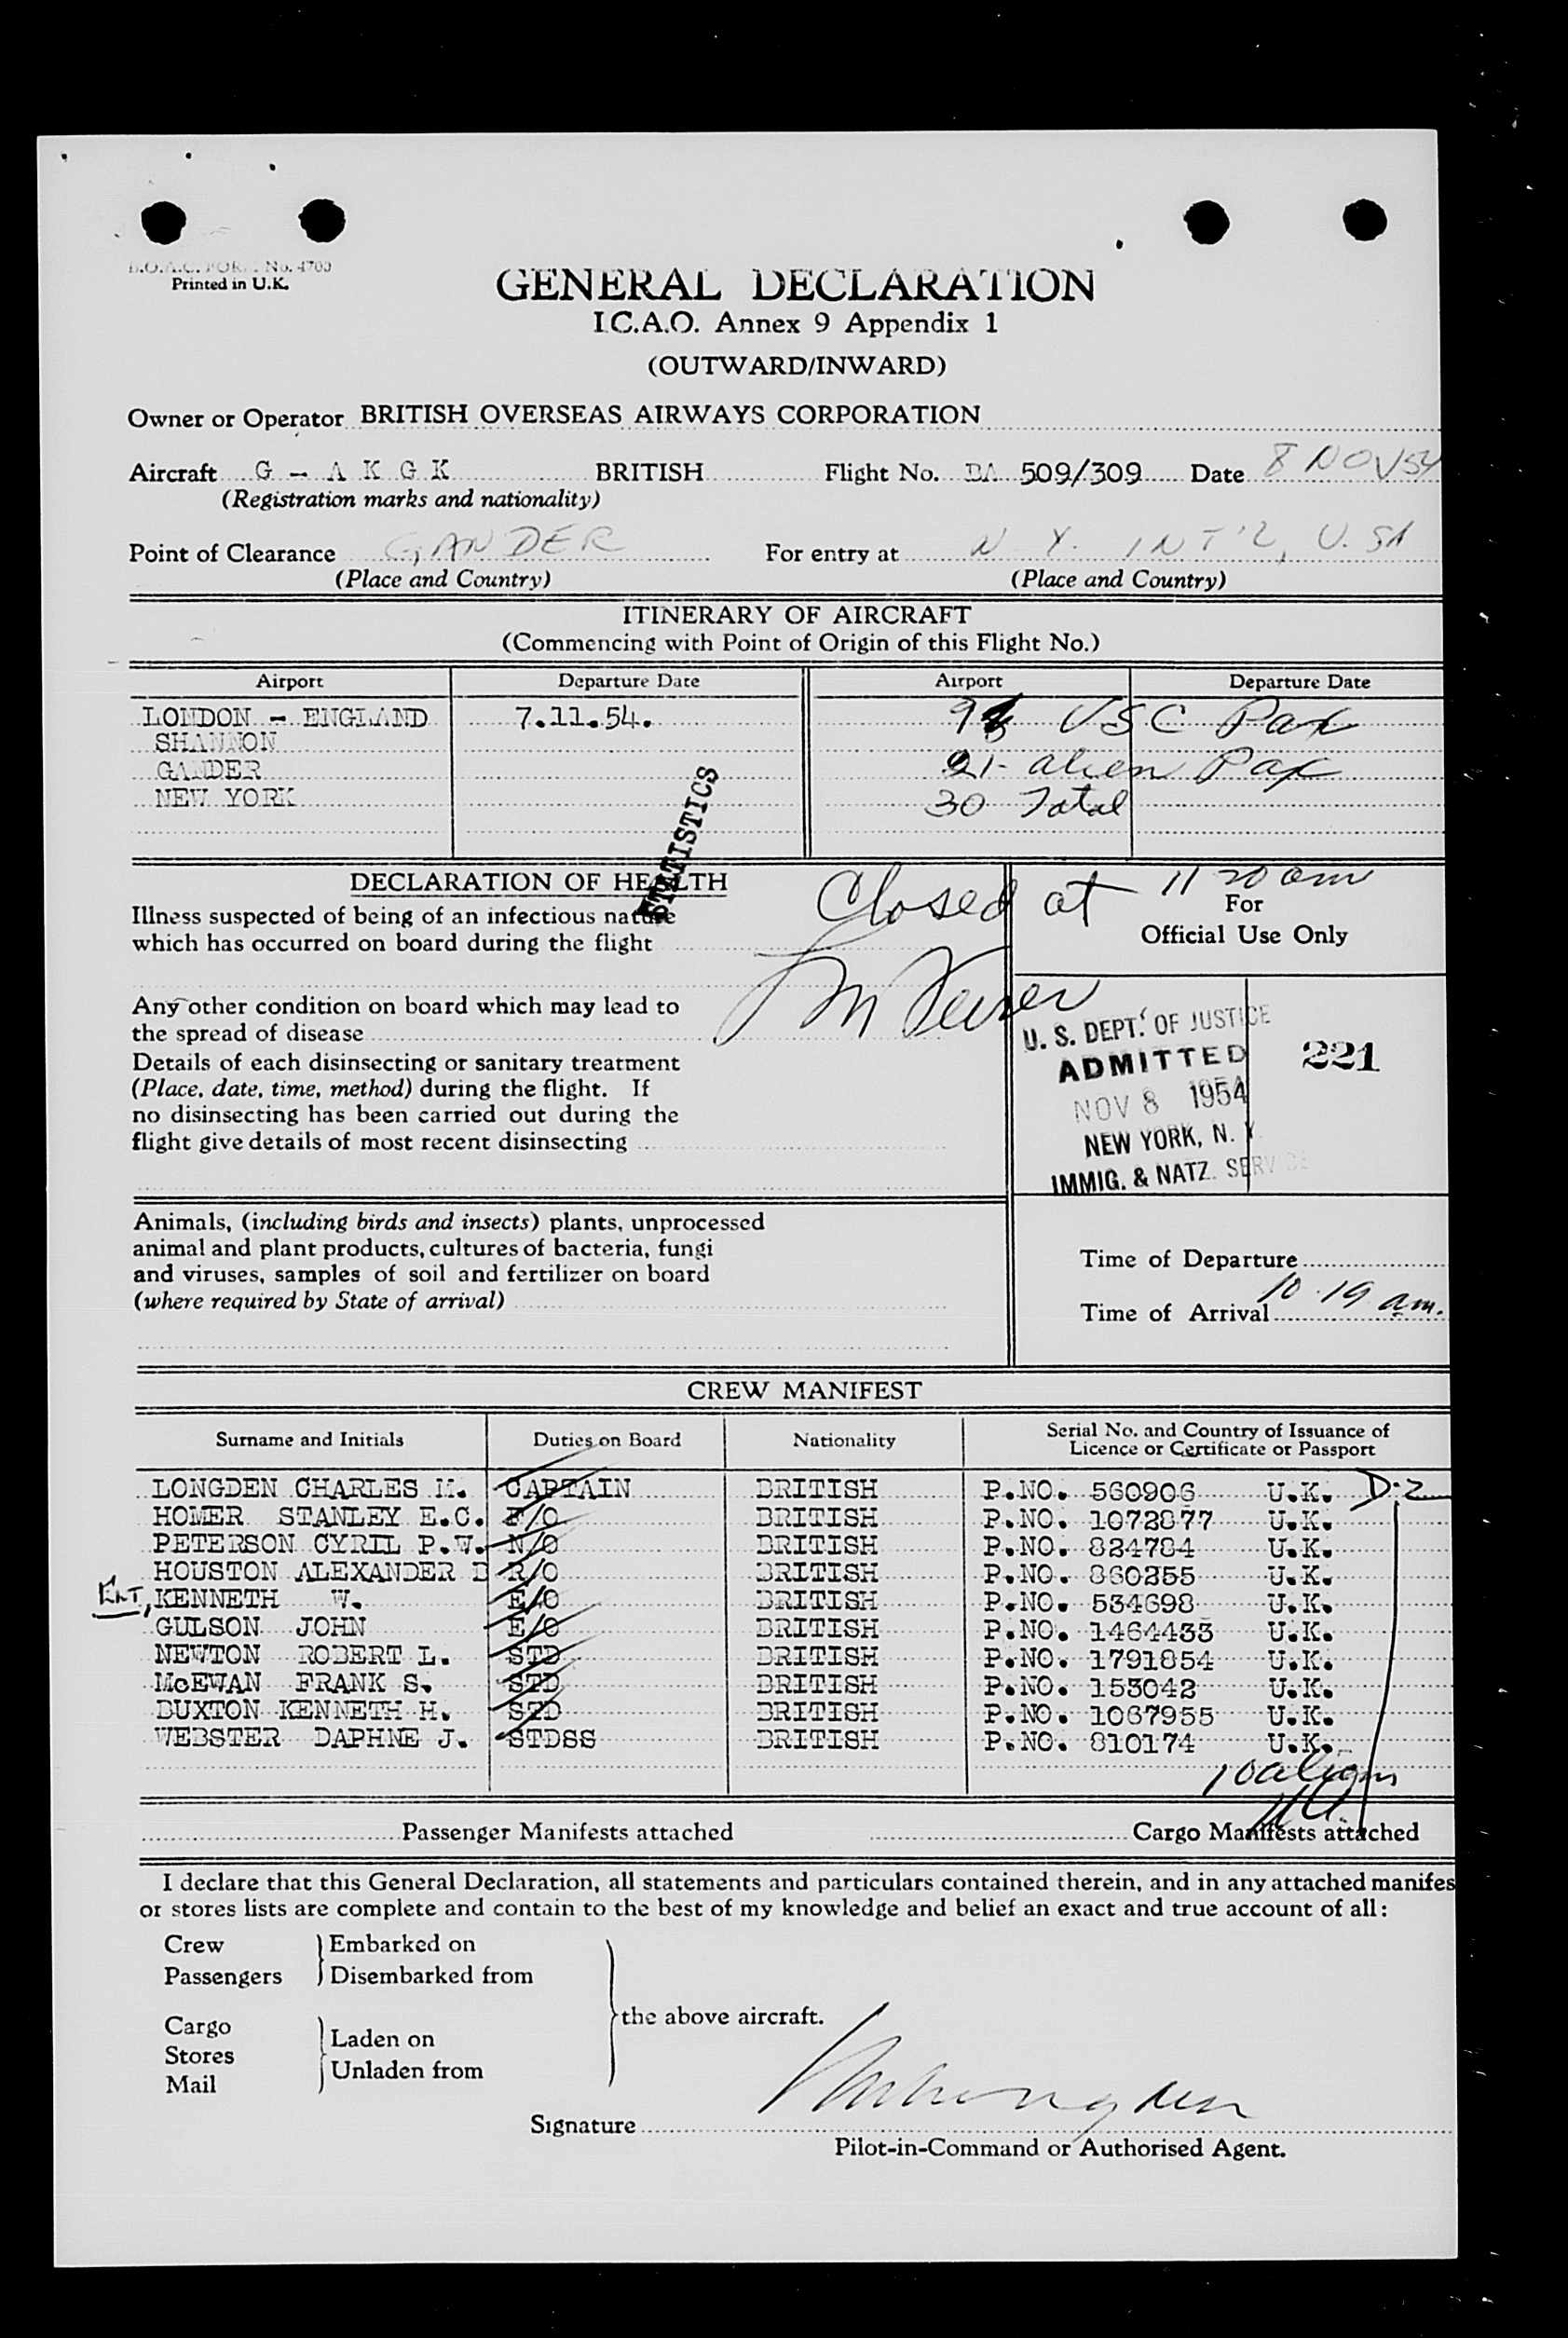 B.O.A.C. FORM No. 4700
Printed in U.K.
GENERAL DECLARATION
I.C.A.O. Annex 9 Appendix 1
(OUTWARD/INWARD)
Owner or Operator BRITISH OVERSEAS AIRWAYS CORPORATION
Aircraft G - A K G K BRITISH Flight No. BA 509/309 Date 8 NOV 54
(Registration marks and nationality)
Point of Clearance GANDER For entry at N. Y. INT'L, U.SA
(Place and Country) (Place and Country)
ITINERARY OF AIRCRAFT
(Commencing with Point of Origin of this Flight No.)
Airport Departure Date Airport Departure Date
LONDON - ENGLAND 7.11.54. 9 USC Pax
SHANNON
GANDER 21 alien Pax
NEW YORK 30 Total
STATISTICS
DECLARATION OF HEALTH Closed at 11 20 am
Illness suspected of being of an infectious nature For
which has occurred on board during the flight Official Use Only
Any other condition on board which may lead to
the spread of disease
Details of each disinsecting or sanitary treatment
(Place, date, time, method) during the flight. If
no disinsecting has been carried out during the
flight give details of most recent disinsecting
U. S. DEPT. OF JUSTICE
ADMITTED 221
NOV 8 1954
NEW YORK, N. Y.
IMMIG. & NATZ. SERVICE
Animals, (including birds and insects) plants, unprocessed
animal and plant products, cultures of bacteria, fungi
and viruses, samples of soil and fertilizer on board
(where required by State of arrival)
Time of Departure
Time of Arrival 10.19 am.
CREW MANIFEST
Surname and Initials Duties on Board Nationality Serial No. and Country of Issuance of
Licence or Certificate or Passport
LONGDEN CHARLES M. CAPTAIN BRITISH P.NO. 560906 U.K. D-2
HOMER STANLEY E.C. F/O BRITISH P.NO. 1072877 U.K.
PETERSON CYRIL P.W. N/O BRITISH P.NO. 824784 U.K.
HOUSTON ALEXANDER D R/O BRITISH P.NO. 860255 U.K.
KENNETH W. E/O BRITISH P.NO. 534698 U.K.
GULSON JOHN E/O BRITISH P.NO. 1464433 U.K.
NEWTON ROBERT L. STD BRITISH P.NO. 1791854 U.K.
McEWAN FRANK S. STD BRITISH P.NO. 153042 U.K.
BUXTON KENNETH H. STD BRITISH P.NO. 1067955 U.K.
WEBSTER DAPHNE J. STDSS BRITISH P.NO. 810174 U.K.
10 aliens
Passenger Manifests attached Cargo Manifests attached
I declare that this General Declaration, all statements and particulars contained therein, and in any attached manifes
or stores lists are complete and contain to the best of my knowledge and belief an exact and true account of all:
Crew Embarked on
Passengers Disembarked from
the above aircraft.
Cargo
Stores Laden on
Mail Unladen from
Signature
Pilot-in-Command or Authorised Agent.